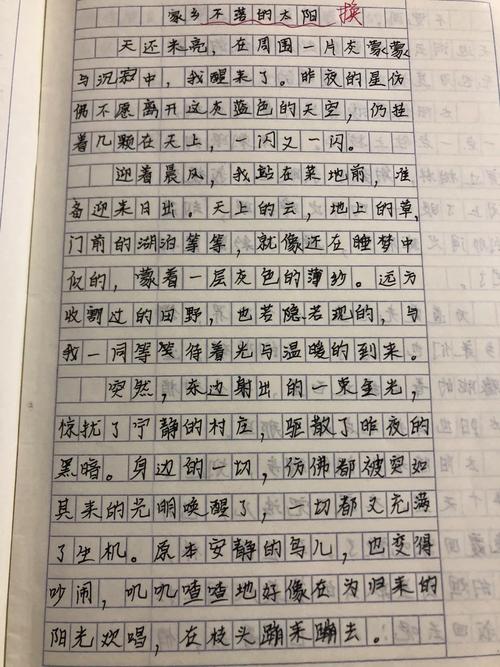 家乡不落的太阳 换
天还未亮，在周围一片灰蒙蒙
与沉寂中，我醒来了。昨夜的星仿
佛不愿离开这灰蓝色的天空，仍挂
着几颗在天上，一闪又一闪。
迎着晨风，我站在菜地前，准
备迎来日出。天上的云，地上的草，
门前的湖泊等等，就像还在睡梦中
似的，蒙着一层灰色的薄纱。远方
收割过的田野，也若隐若现的，与
我一同等待着光与温暖的到来。
突然，东边射出的一束金光，
惊扰了宁静的村庄，驱散了昨夜的
黑暗。身边的一切，仿佛都被突如
其来的光明唤醒了，一切都又充满
了生机。原本安静的鸟儿，也变得
吵闹，叽叽喳喳地好像在为归来的
阳光欢唱，在枝头蹦来蹦去。